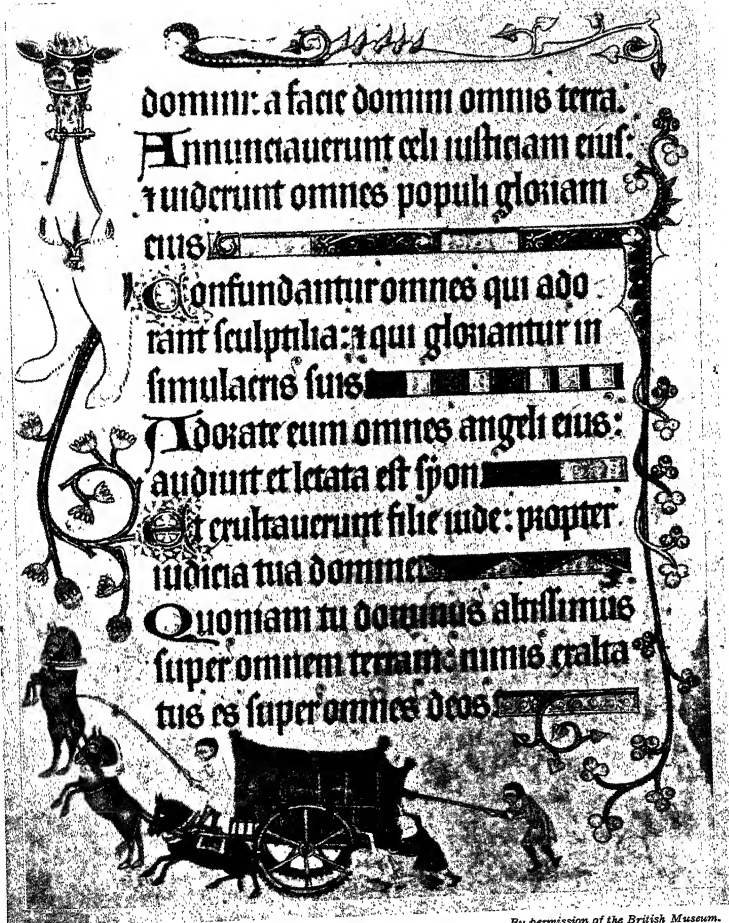 domini: a facie domini omnis terra.
Annunciauerunt celi iusticiam eius:
⁊ uiderunt omnes populi gloriam
eius
Confundantur omnes qui ado
rant sculptilia: ⁊ qui gloriantur in
simulacris suis
Adorate eum omnes angeli eius:
audiuit et letata est syon
Et exultauerunt filie iude: propter
iudicia tua domine
Quoniam tu dominus altissimus
super omnem terram: nimis exalta
tus es super omnes deos
By permission of the British Museum.